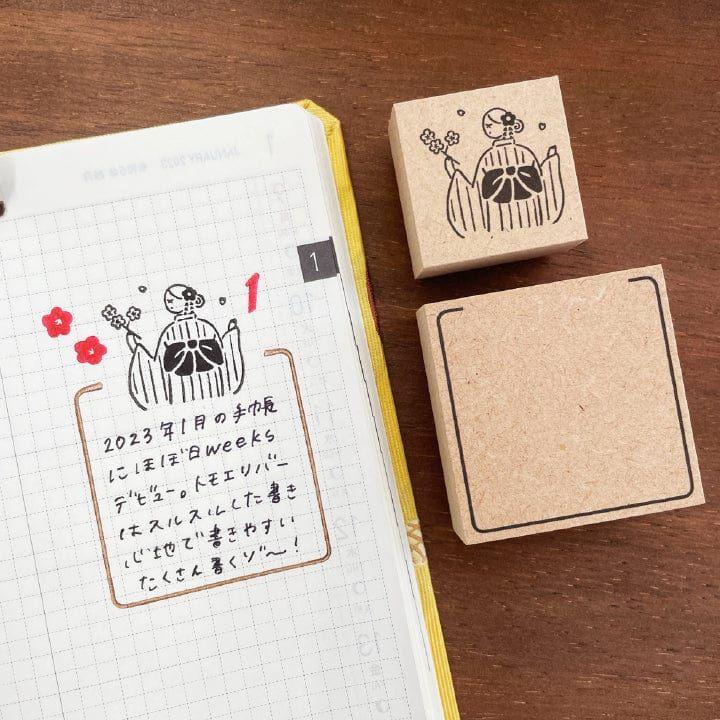 JANUARY 2023
1
1
2023年1月の手帳
にほぼ日weeks
デビュー。トモエリバー
はスルスルした書き
心地で書きやすい
たくさん書くゾ〜!